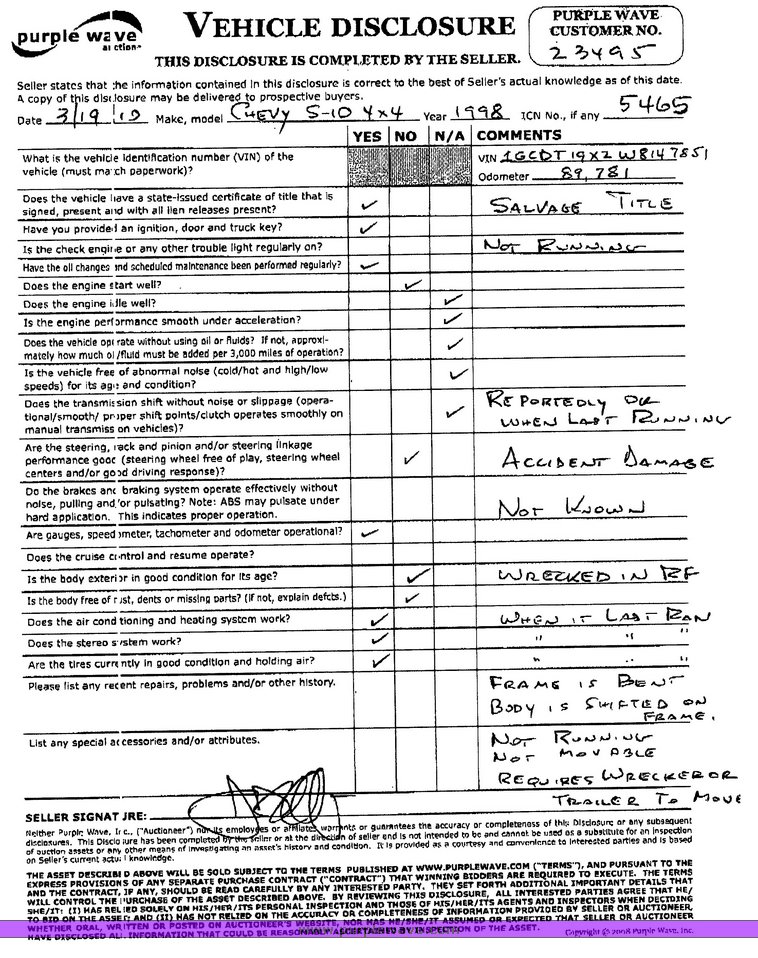 purple wave
auction
VEHICLE DISCLOSURE
THIS DISCLOSURE IS COMPLETED BY THE SELLER.
PURPLE WAVE
CUSTOMER NO.
23495
Seller states that the information contained in this disclosure is correct to the best of Seller's actual knowledge as of this date.
A copy of this disclosure may be delivered to prospective buyers.
Date 3/19/19 Make, model CHEVY S-10 4x4 Year 1998 ICN No., if any 5465
YES NO N/A COMMENTS
What is the vehicle identification number (VIN) of the
vehicle (must match paperwork)?
VIN 1GCDT19X2W8147851
Odometer 89,781
Does the vehicle have a state-issued certificate of title that is
signed, present and with all lien releases present? ✓ SALVAGE TITLE
Have you provided an ignition, door and truck key? ✓
Is the check engine or any other trouble light regularly on? NOT RUNNING
Have the oil changes and scheduled maintenance been performed regularly? ✓
Does the engine start well? ✓
Does the engine idle well? ✓
Is the engine performance smooth under acceleration? ✓
Does the vehicle operate without using oil or fluids? If not, approxi-
mately how much oil/fluid must be added per 3,000 miles of operation? ✓
Is the vehicle free of abnormal noise (cold/hot and high/low
speeds) for its age and condition? ✓
Does the transmission shift without noise or slippage (opera-
tional/smooth/ proper shift points/clutch operates smoothly on
manual transmission vehicles)? ✓
REPORTEDLY OK
WHEN LAST RUNNING
Are the steering, rack and pinion and/or steering linkage
performance good (steering wheel free of play, steering wheel
centers and/or good driving response)? ✓ ACCIDENT DAMAGE
Do the brakes and braking system operate effectively without
noise, pulling and/or pulsating? Note: ABS may pulsate under
hard application. This indicates proper operation. NOT KNOWN
Are gauges, speedometer, tachometer and odometer operational? ✓
Does the cruise control and resume operate?
Is the body exterior in good condition for its age? ✓ WRECKED IN RF
Is the body free of rust, dents or missing parts? (if not, explain defcts.) ✓
Does the air conditioning and heating system work? ✓ WHEN IT LAST RAN
Does the stereo system work? ✓ " " "
Are the tires currently in good condition and holding air? ✓ " " "
Please list any recent repairs, problems and/or other history.
FRAME IS BENT
BODY IS SHIFTED ON
FRAME.
List any special accessories and/or attributes.
NOT RUNNING
NOT MOVABLE
REQUIRES WRECKER OR
TRAILER TO MOVE
SELLER SIGNATURE:
Neither Purple Wave, Inc., ("Auctioneer") nor its employees or affiliates warrants or guarantees the accuracy or completeness of this Disclosure or any subsequent
disclosures. This Disclosure has been completed by the seller or at the direction of seller and is not intended to be and cannot be used as a substitute for an inspection
of auction assets or any other means of investigating an asset's history and condition. It is provided as a courtesy and convenience to interested parties and is based
on Seller's current actual knowledge.
THE ASSET DESCRIBED ABOVE WILL BE SOLD SUBJECT TO THE TERMS PUBLISHED AT WWW.PURPLEWAVE.COM ("TERMS"), AND PURSUANT TO THE
EXPRESS PROVISIONS OF ANY SEPARATE PURCHASE CONTRACT ("CONTRACT") THAT WINNING BIDDERS ARE REQUIRED TO EXECUTE. THE TERMS
AND THE CONTRACT, IF ANY, SHOULD BE READ CAREFULLY BY ANY INTERESTED PARTY. THEY SET FORTH ADDITIONAL IMPORTANT DETAILS THAT
WILL CONTROL THE PURCHASE OF THE ASSET DESCRIBED ABOVE. BY REVIEWING THIS DISCLOSURE, ALL INTERESTED PARTIES AGREE THAT HE/
SHE/IT: (I) HAS RELIED SOLELY ON HIS/HER/ITS PERSONAL INSPECTION AND THOSE OF HIS/HER/ITS AGENTS AND INSPECTORS WHEN DECIDING
TO BID ON THE ASSET; AND (II) HAS NOT RELIED ON THE ACCURACY OR COMPLETENESS OF INFORMATION PROVIDED BY SELLER OR AUCTIONEER,
WHETHER ORAL, WRITTEN OR POSTED ON AUCTIONEER'S WEBSITE, NOR HAS HE/SHE/IT ASSUMED OR EXPECTED THAT SELLER OR AUCTIONEER
HAVE DISCLOSED ALL INFORMATION THAT COULD BE REASONABLY ASCERTAINED BY INSPECTION OF THE ASSET.
Copyright © 2008 Purple Wave, Inc.